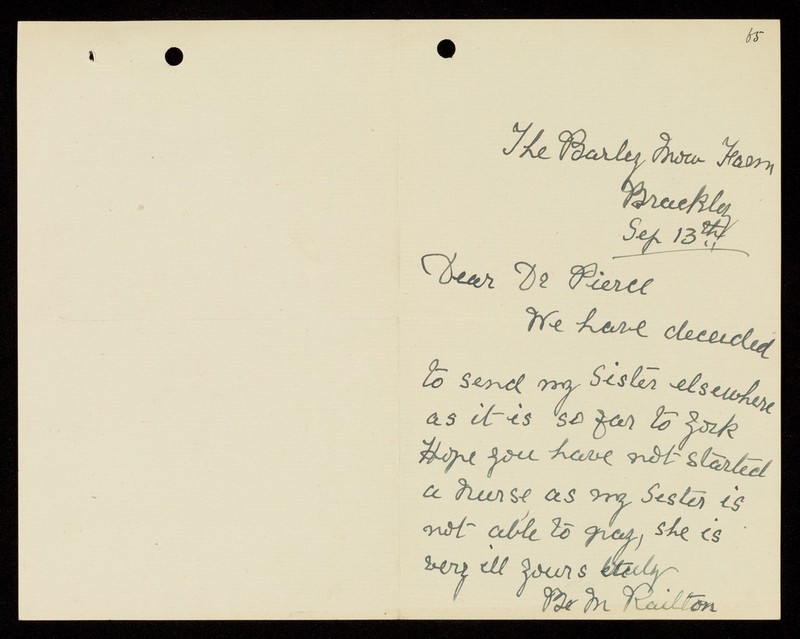 65
The Barley Mow Farm
Brackley
Sep 13th
Dear Dr Pierce
We have deceided
to send my Sister elsewhere
as it is so far to York
Hope you have not started
a Nurse as my Sister is
not able to pay, she is
very ill yours truly
M Railton